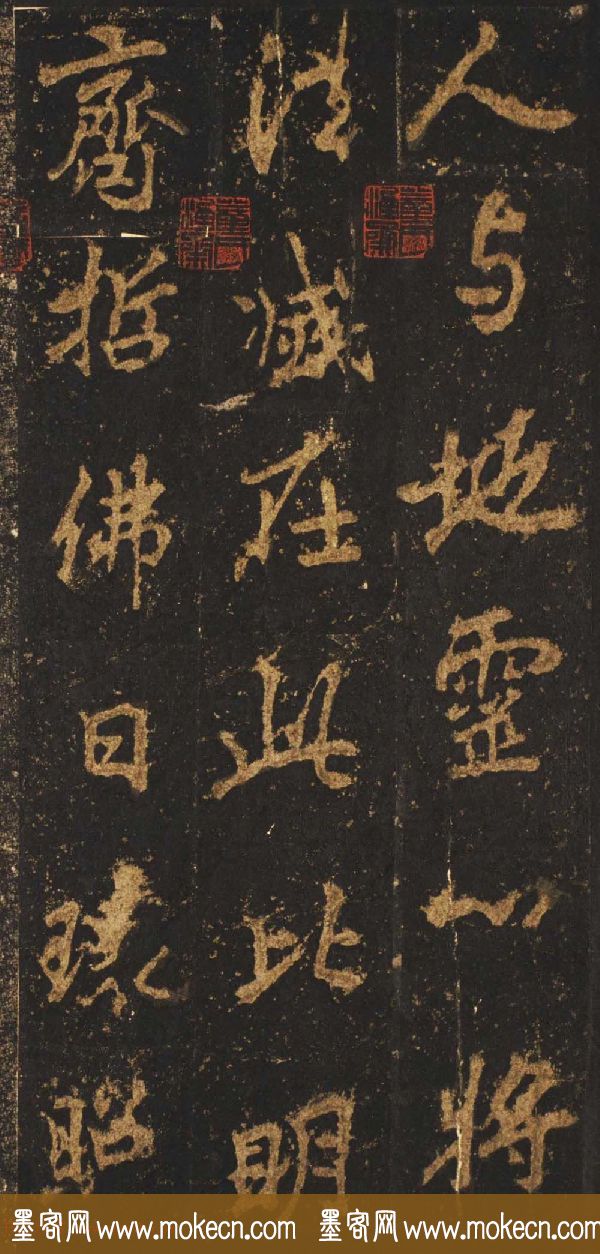 人与地靈心將
法滅在此比明
齊哲佛日環昭
墨客网 www.mokecn.com 墨客网 www.mokecn.com